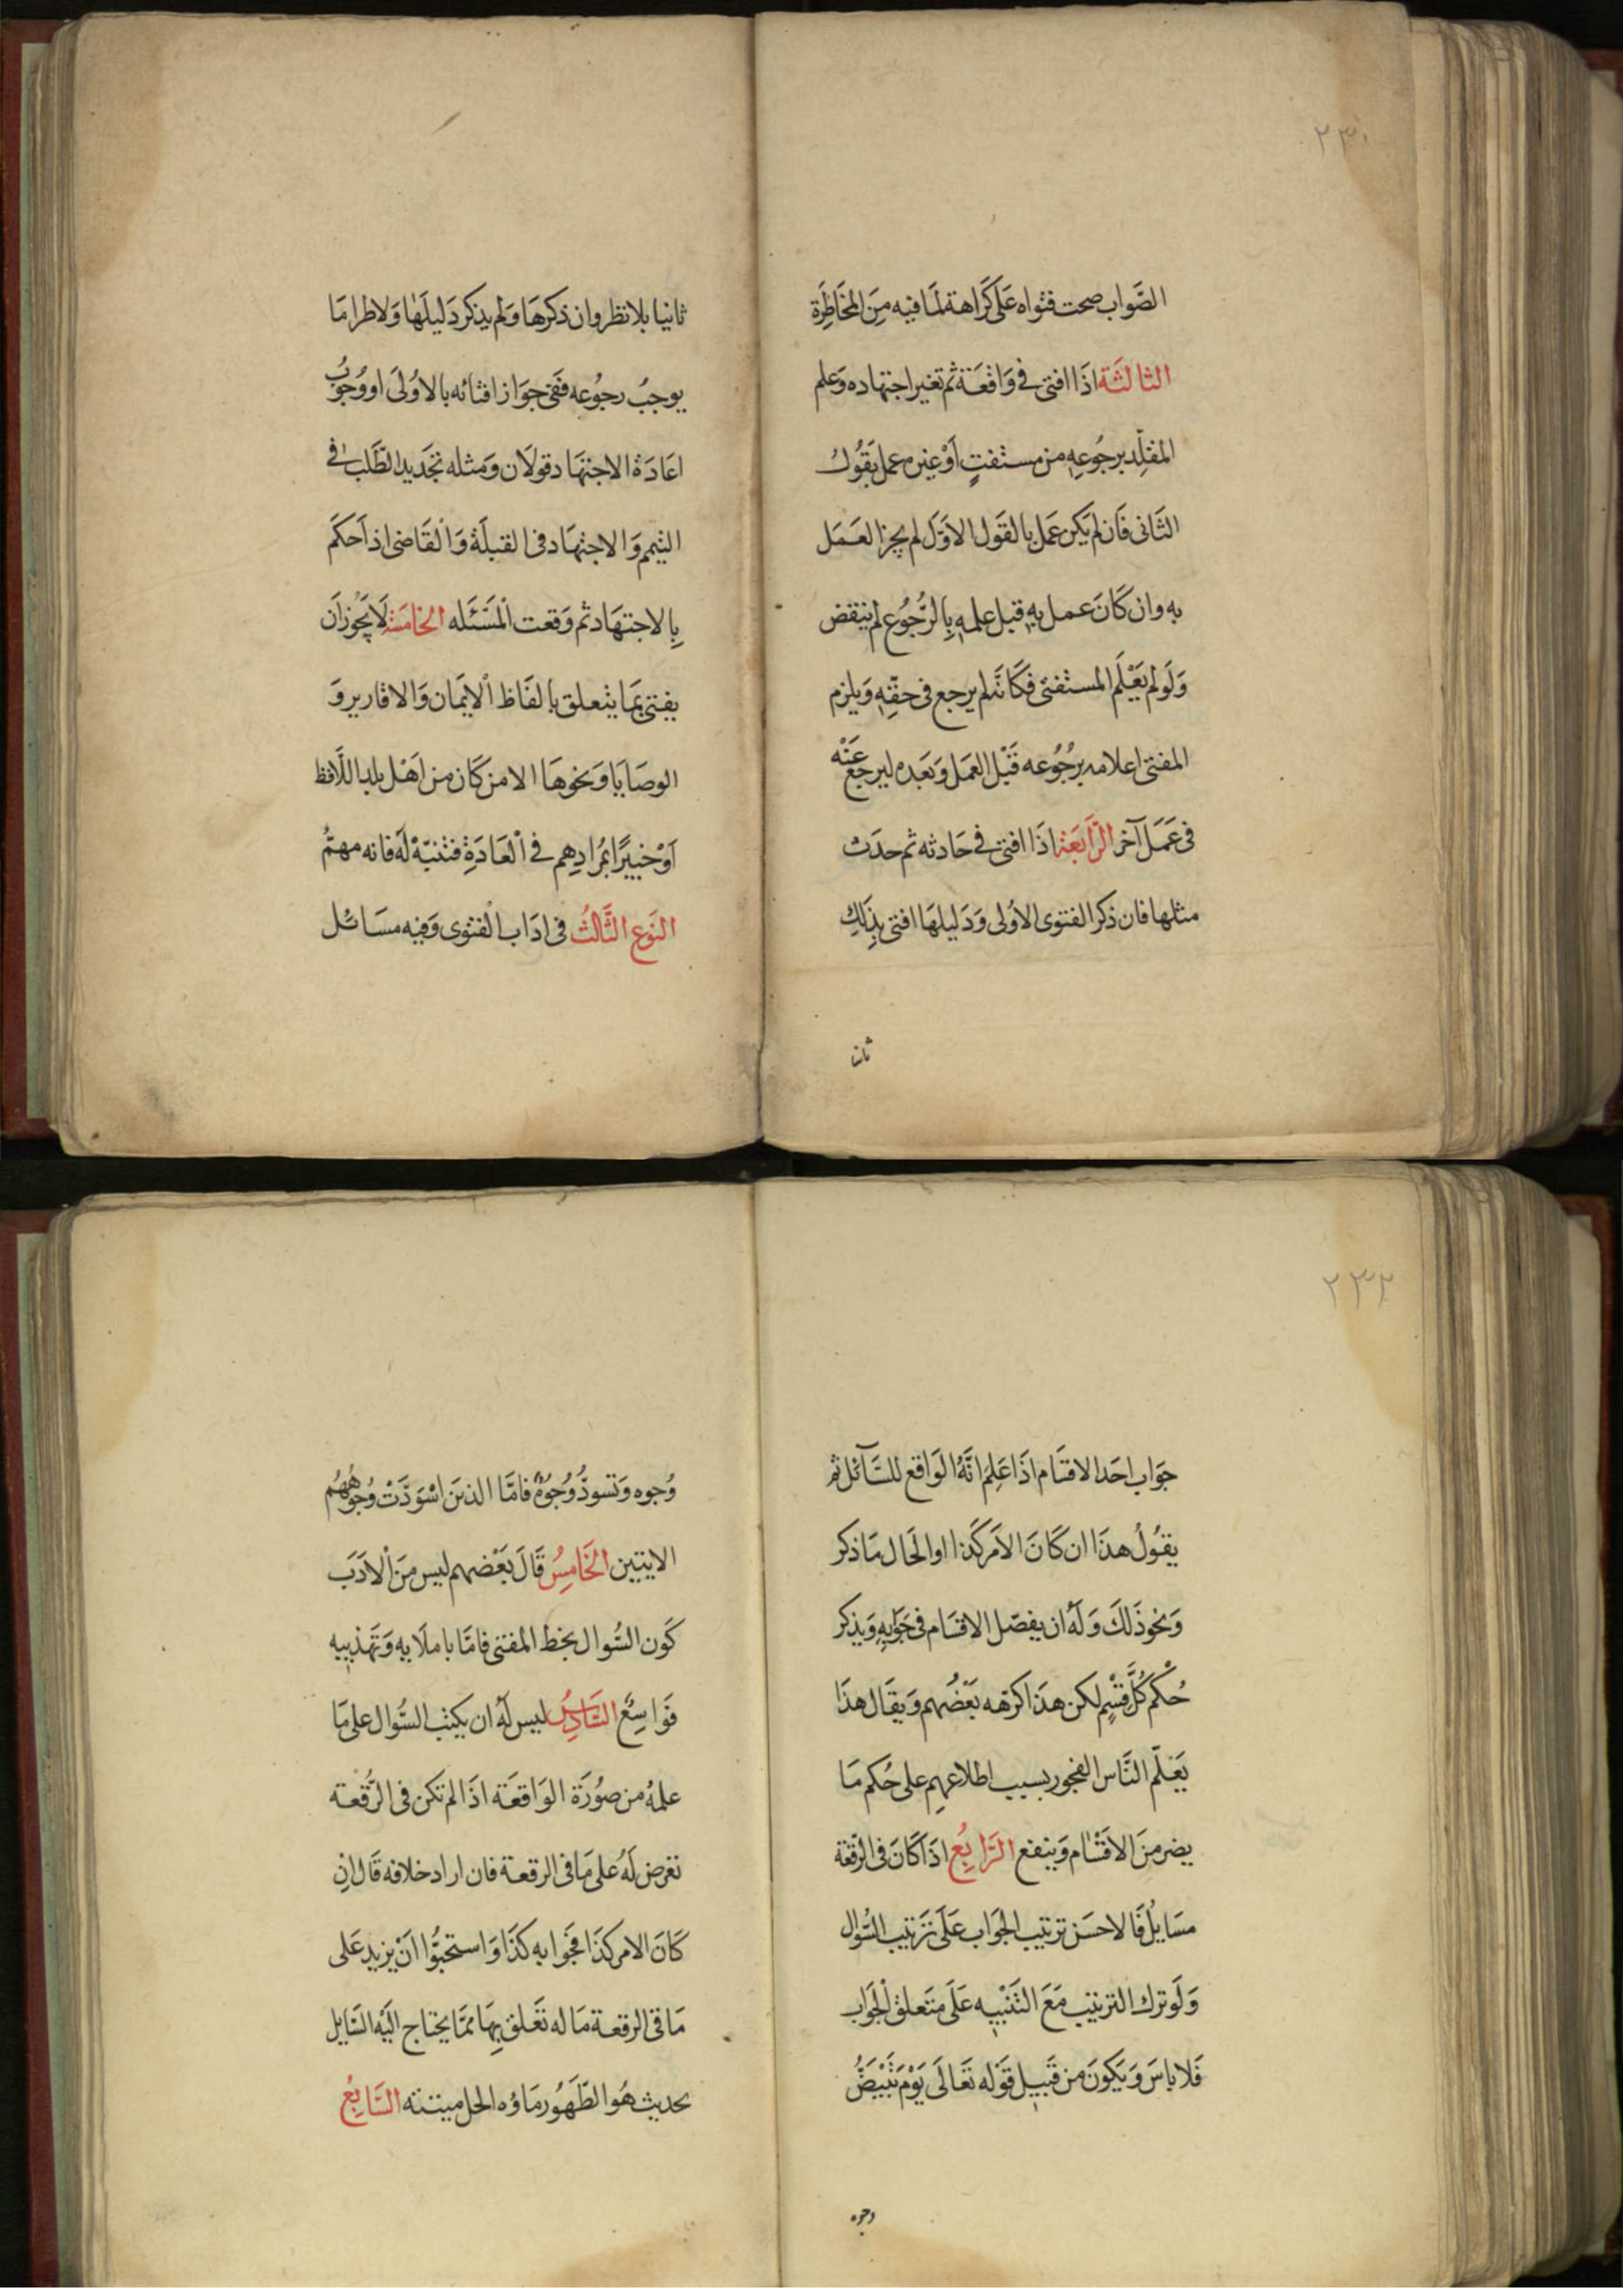 ٢٣٠
الصَّواب صحت فتواه عَلَى كَرَاهة لمَا فيه مِنَ المخَاطَرَة
الثالثَة اذَا افتى فى وَاقعَة ثم تغير اجتهاده وَعلم
المقلِّد برجُوعِهِ من مستفتٍ اَوْ غيره عمل بقَوْله
الثَانى فَان لم يَكن عَمل بالقَول الاَوّل لم يجز العَمَل
به وان كَانَ عمل بِهِ قبل علمهِ بِالرُّجُوع لم ينقض
وَلَو لم يَعْلَم المستفتى فكَانّه لم يرجع فى حقّهِ وَيلزم
المفتى اعلامه برجُوعه قَبْل العمَل وَبَعده ليرجع عَنْه
فى عَمَل آخر الرَّابعَة اذَا افتى فى حَادثه ثم حدَث
مثلها فان ذكر الفتوى الاُولى وَدَليلهَا افتى بِذَلِك
ثانيا
ثانيا بلا نظر وان ذكرهَا وَلم يذكر دَليلَهَا وَلا طرا مَا
يوجبُ رجُوعه ففى جوَاز افتائه بالاوُلىَ او وُجوُب
اعَادَة الاجتهَاد قولَان وَمثله تجَديد الطّلَب فى
التيمم وَالاجتهَاد فى القبلَة وَالْقَاضى اذ اَحكَم
بِالاجتهَاد ثم وَقعت الْمسَئَله الخامسَة لَا يَجُوز اَن
يفتى بمَا يتعلق بالفَاظ الْايَمان وَالاقارير وَ
الوصَايَا وَنحوهَا الا من كَان من اَهْل بلد اللَّافظ
اَوْ خبيرًا بمُرادِهِم فى الْعَادَةِ فتنبّهْ لَه فانه مهمٌّ
النَوع الثَّالثُ فى ادَاب الْفتوى وَفيه مسَائل
٢٣٢
جوَاب احَد الاقسَام اذَا عَلِمَ انَّهُ الوَاقع للسَّآئل ثم
يقُولُ هذَا ان كَانَ الاَمر كَذا او الحَال مَا ذكر
وَنحو ذَلكَ وَلَهُ ان يفصّل الاقسَام فى جَوَابِهِ وَيذكر
حُكْم كُلَّ قِسْمٍ لكن هذَا كرَهه بَعْضُهم وَيقَال هذَا
يَعَلّم النَّاس الفجور بسبب اطلاعهم على حُكم مَا
يضر منَ الاقسَام وَينفع الرَّابِعُ اذَا كَانَ فى الرّقعَة
مسَايُل فَالاحسَن ترتيب الجَوَاب عَلَى تَرتيب السُّوال
وَلَو ترك الترتيب مَعَ التَنْبِيه عَلَى متَعلق الْجوَاب
فَلا باسَ وَيَكونَ من قَبيِل قَوْله تَعَالَى يَوْمَ تَبْيَضُّ
وجوه
وُجوه وَتسوَدُّ وُجُوهٌ فامَّا الذين اسْوَدَّتْ وُجُوههُم
الايتين الخَامسُ قَالَ بَعْضهم ليس مِنَ الْاَدَب
كَون السُّوال بخط المفتى فامَّا باملَايه وَتَهذيبه
فوَاسِعُ السَّادِسُ ليس لَهُ ان يكتب السُّوال على مَا
علمهُ من صُورَة الوَاقعَة اذَا لم تكن فى الرُّقعة
تعرض لَهُ على مَا فى الرقعة فان اراد خلافه قَال اِن
كَانَ الامر كذَا فجَوابه كذَا وَاستحَبُّوا اَنْ يزيد عَلى
مَا فى الرقعة مَا له تَعَلق بِهَا ممَّا يحتاج اليَه السَّايل
بحديث هُو الطّهَوُر مَاؤه الحل ميتته السَّابِعُ